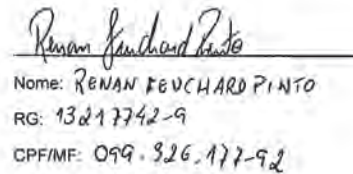 Renan Feuchard Pinto
Nome: RENAN FEUCHARD PINTO
RG: 13217742-9
CPF/MF: 099.326.177-92